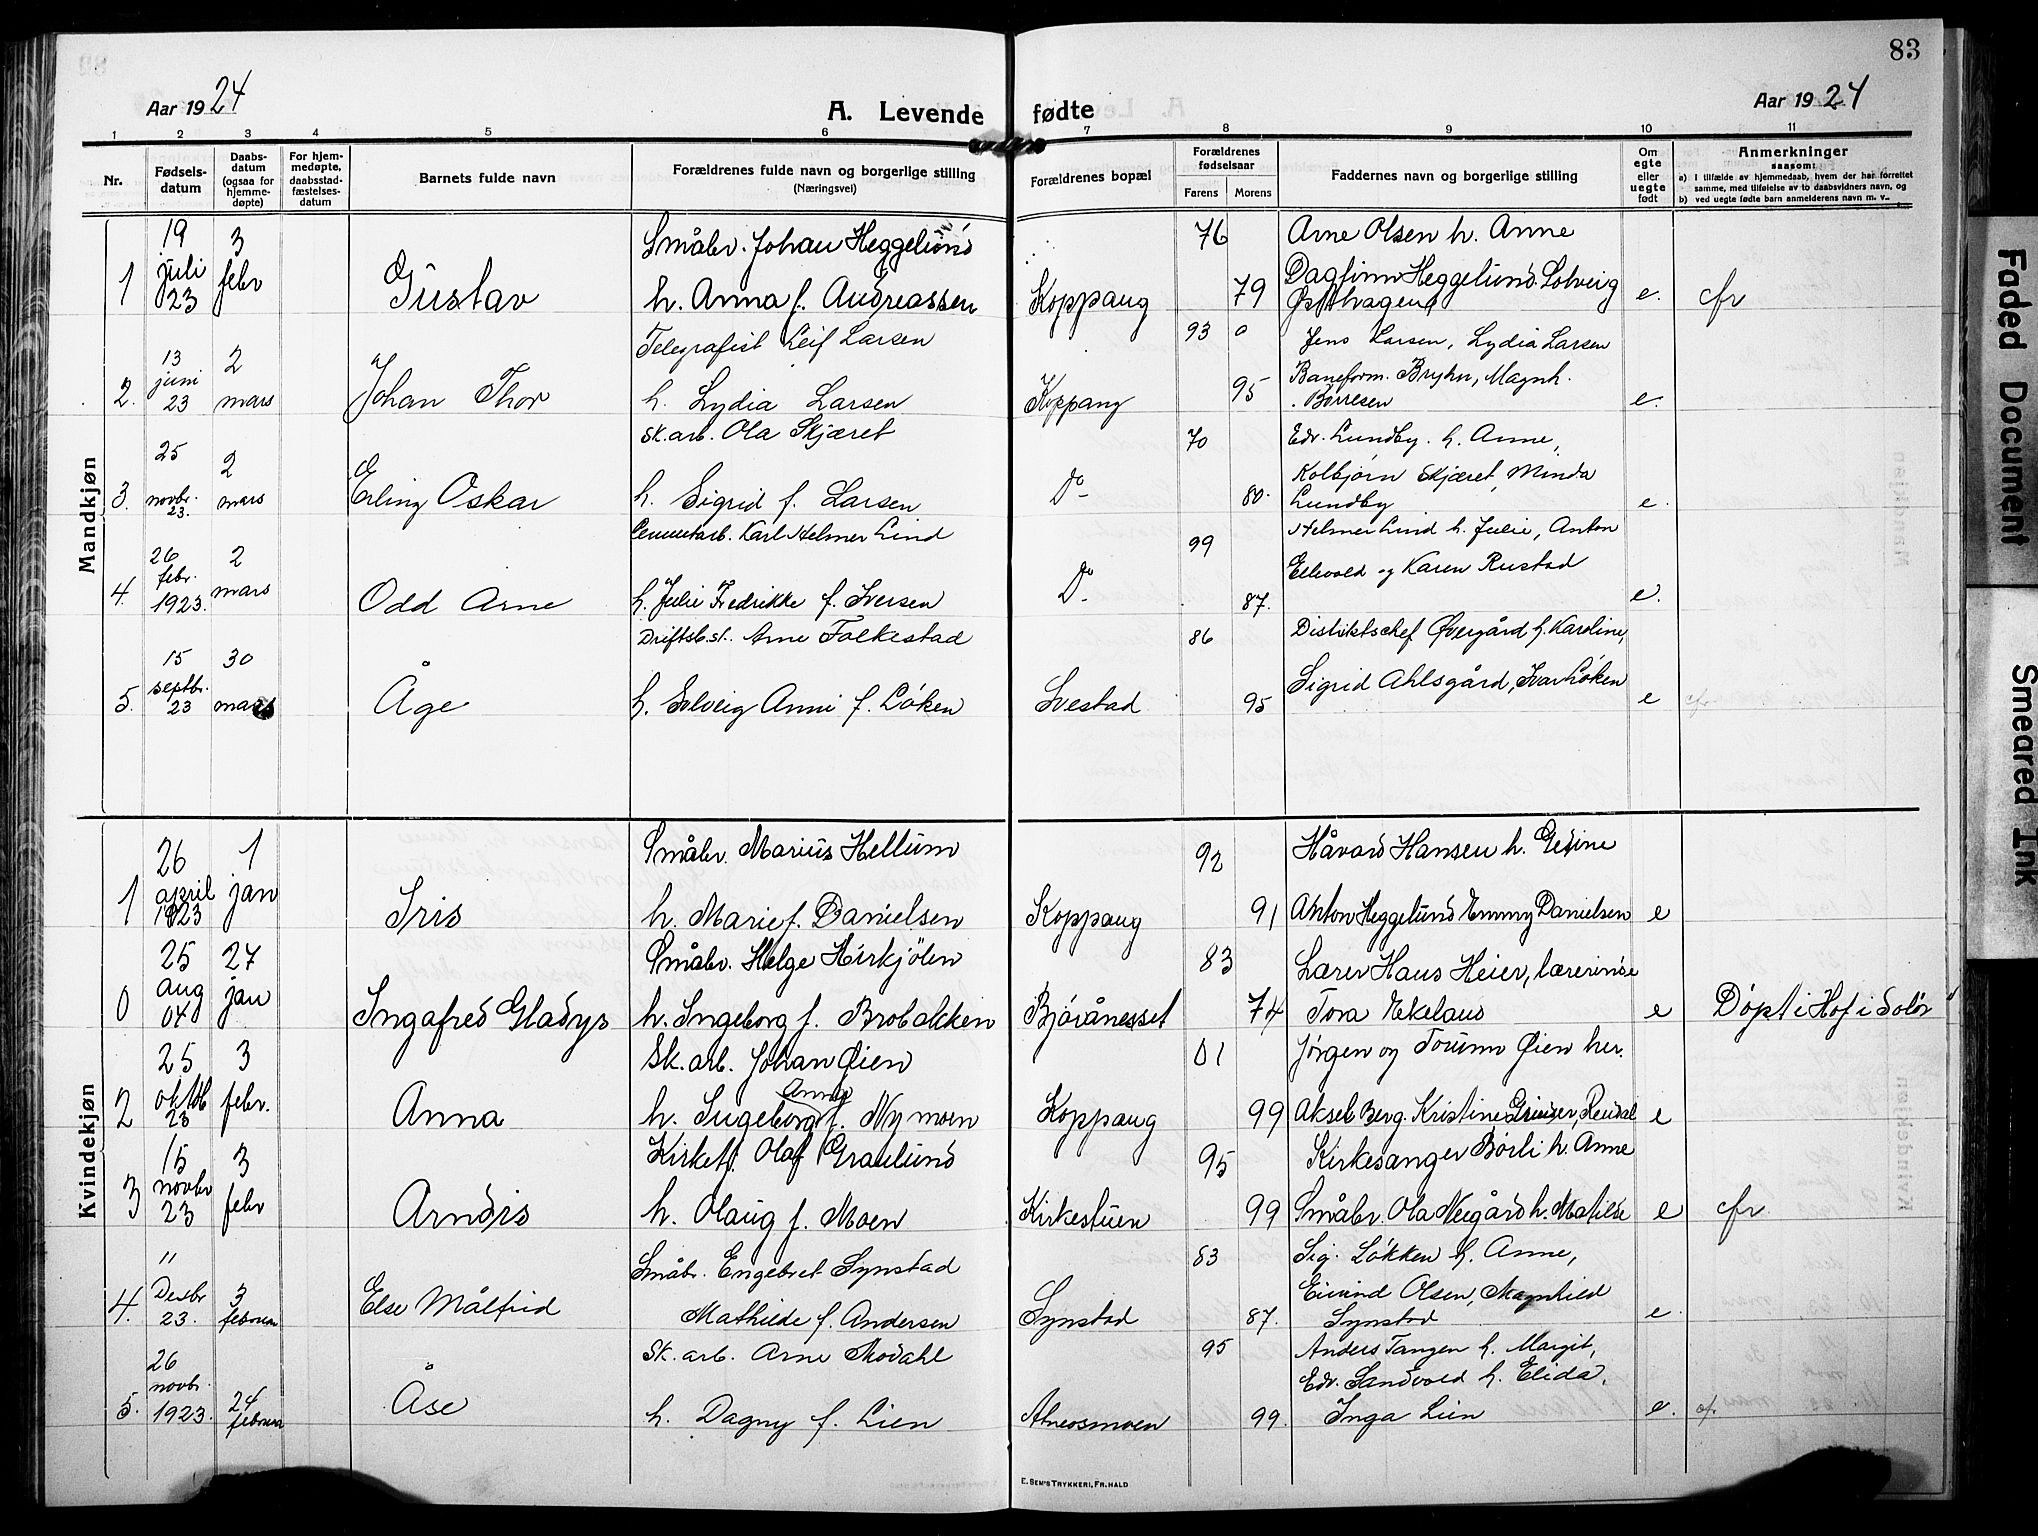 83
Aar 1924 A. Levende fødte Aar 1924
1 2 3 4 5 6 7 8 9 10 11
Nr. Fødselsdatum Daabsdatum (ogsaa for hjemmedøpte) For hjemmedøpte, daabsstadfæstelsesdatum Barnets fulde navn Forældrenes fulde navn og borgerlige stilling (Næringsvei) Forældrenes bopæl Forældrenes fødselsaar Farens Morens Faddernes navn og borgerlige stilling Om egte eller uegte født Anmerkninger saasom:
a) I tilfælde av hjemmedaab, hvem der har forrettet samme, med tilføielse av to daabsvidners navn, og
b) ved uegte fødte barn anmelderens navn m. v.
Mandkjøn
19 3 Småbr. Johan Heggelund 76 Arne Olsen h. Anne
1 juli 23 febr Gustav h. Anna f. Andreassen Koppang 79 Dagfinn Heggelund. Solveig e. cfr
Telegrafist Leif Larsen 93 Jens Larsen, Lydia Larsen
2. 13 juni 23 2 mars Johan Thor h. Lydia Larsen Koppang 95 Baneform. Bryhn, Magnh. Børresen e.
Sk. arb. Ola Skjæret 70 Edv. Lundby. h. Anne,
3. 25 novbr. 23. 2 mars Erling Oskar h. Sigrid f. Larsen Do 80. Kolbjørn Skjæret, Minda Lundby e.
Cementarb. Karl Helmer Lind 99 Helmer Lind h. Julie, Anton
4. 26 febr. 1923. 2 mars Odd Arne h. Julie Fredrikke f. Iversen Do 87. Ellevold og Karen Rustad e.
Driftsb.st. Arne Folkestad 86 Distriktschef Øvergård h. Karoline,
5. 15 septbr. 23 30 mars Åge h. Solveig Anni f. Løken Svestad 95 Sigrid Ahlsgård, Ivar Løken e cfr
Kvindekjøn
26 1 Småbr. Marius Hellum 92 Håvard Hansen h. Gesine
1 april 1923 jan Iris h. Marie f. Danielsen Koppang 91 Anton Heggelund Emmy Danielsen e
25 27 Småbr. Helge Hirkjølen 83 Lærer Hans Heier, lærerinde
0 aug 04 jan Ingafred Gladys h. Ingeborg f. Brobakken Bjørånesset 74 Tora Ekelaus e Døpt i Hof i Solør
25 3 Sk. arb. Johan Øien 01 Jørgen og Tourinn Øien her.
2 oktob 23 febr. Anna h. Ingeborg Anna f. Nymoen Koppang 99 Aksel Berg. Kristine, Rendal e
15 3 Kirketj. Olaf Granlund 95 Kirkesanger Børli h. Anne
3 novbr 23 febr Arndis h. Olaug f. Moen Kirkestuen 99 Småbr. Ola Neigård h. Matilde e cfr.
" Småbr. Engebret Synstad 83 Sig. Løkken h. Anne,
4. Desbr 23. 3 februar Else Målfrid Mathilde f. Andersen Synstad 87. Eivind Olsen, Magnhild Synstad e.
26 Sk. arb. Arne Modahl 95 Anders Tangen h. Margit,
5. novbr. 1923. 24 februar Åse h. Dagny f. Lien Atneosmoen 99. Edv. Sandvold h. Elida, Inga Lien e. cfr
E. SEM'S TRYKKERI, FR. HALD
Faded Document
Smeared Ink